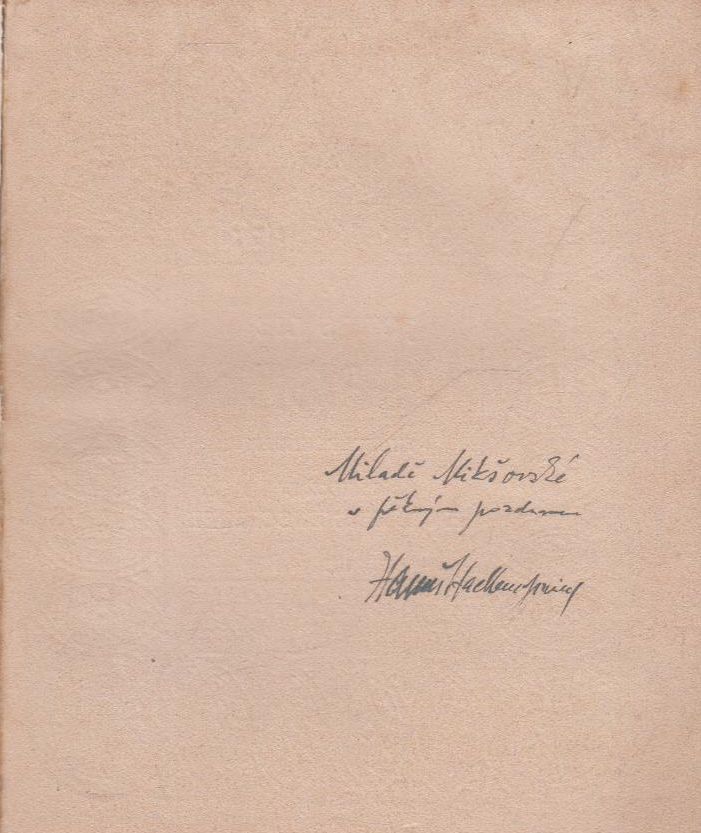 Miladě Mikšovské
s pěkným pozdravem
Hanuš Hachenburg